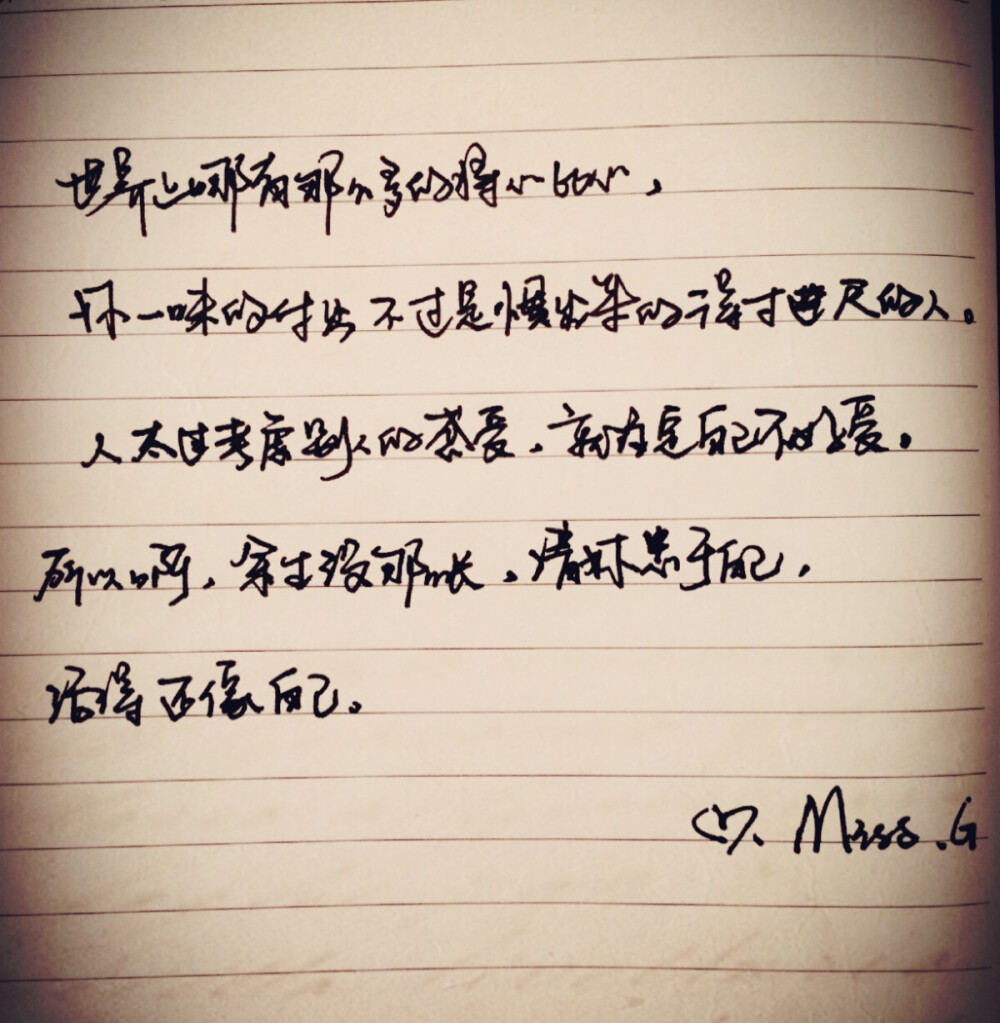 世界上哪有那么多的将心比心，
一味的付出不过是惯出某的得寸进尺的人。
人太过考虑别人的感受，就注定自己不好受。
所以啊，余生没那么长，请忠于自己，
活得还像自己。
♡. Miss.G